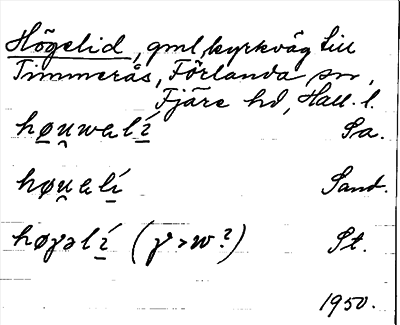 Högelid, gml kyrkväg till
Timmerås, Förlanda sn,
Fjäre hd, Hall. l.
hø̲u̯walí̲ Sa.
høu̯alí̲ Sand.
høγəlí̲ (γ>w?) St.
1950.